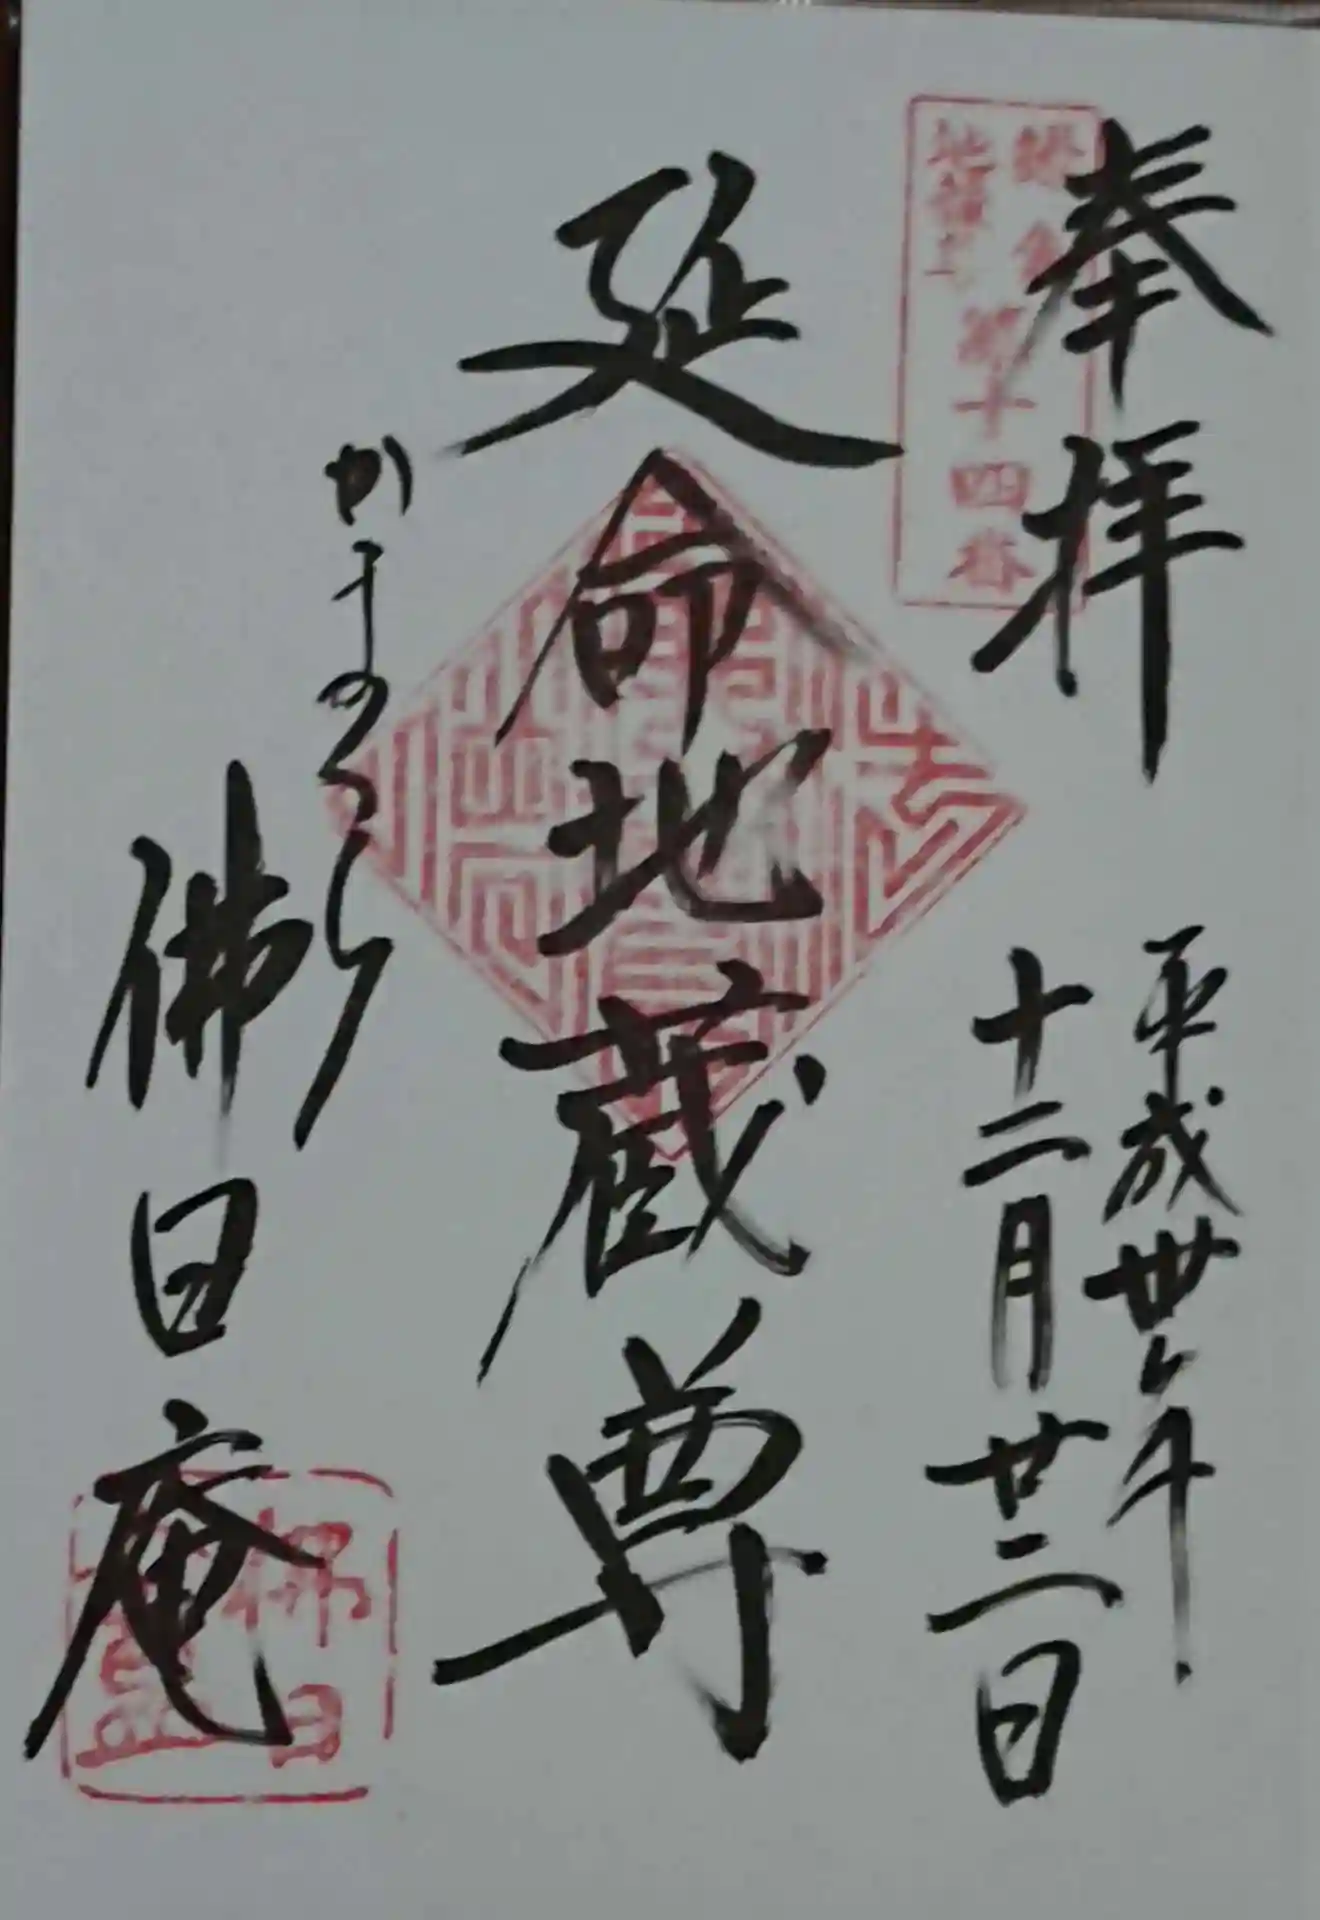 奉拝
平成卅年
十二月廿二日
鎌倉
地蔵尊
第十四番
延命地蔵尊
かまくら
佛日庵
佛日